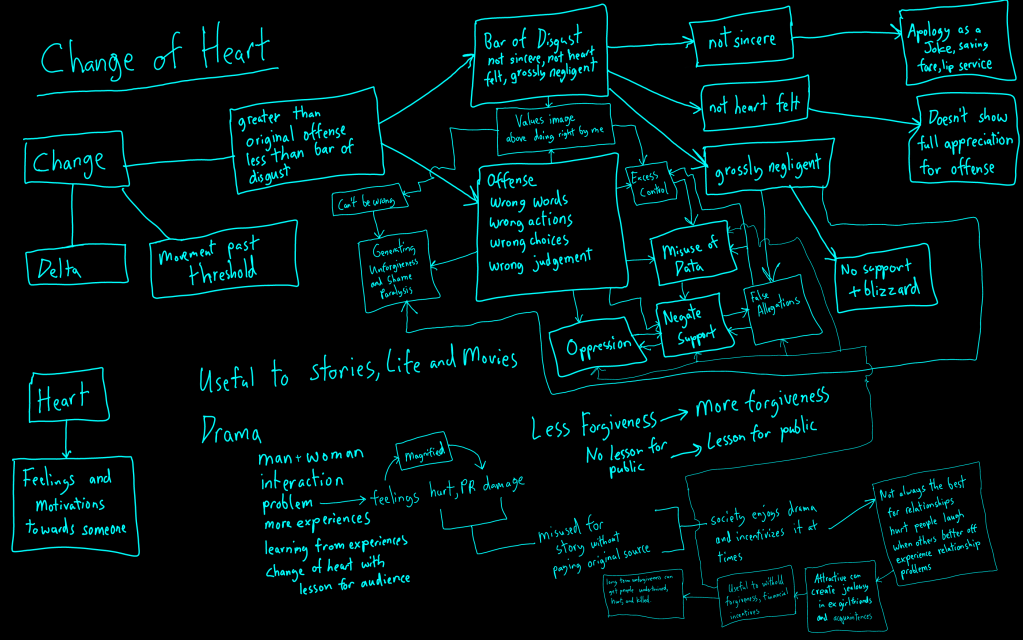 Change of Heart
Change
Delta
Movement past
threshold
greater than
original offense
less than bar of
disgust
Bar of Disgust
not sincere, not heart
felt, grossly negligent
not sincere
Apology as a
Joke, saving
face, lip service
not heart felt
Doesn't show
full appreciation
for offense
grossly negligent
No support
+ blizzard
Values image
above doing right by me
Can't be wrong
Generating
Unforgiveness
and Shame
Paralysis
Offense
wrong words
wrong actions
wrong choices
wrong judgement
Excess
Control
Misuse of
Data
False
Allegations
Negate
Support
Oppression
Heart
Feelings and
motivations
towards someone
Useful to stories, Life and Movies
Drama
man + woman
interaction
problem
more experiences
learning from experiences
change of heart with
lesson for audience
Magnified
feelings hurt, PR damage
Less Forgiveness
More forgiveness
No lesson for
public
Lesson for public
misused for
story without
paying original source
society enjoys drama
and incentivizes it at
times
Not always the best
for relationships
hurt people laugh
when others better off
experience relationship
problems
Attractive can
create jealousy
in ex girlfriends
and acquaintences
Useful to withold
forgiveness, financial
incentives
long term unforgiveness can
get people
hurt, and killed